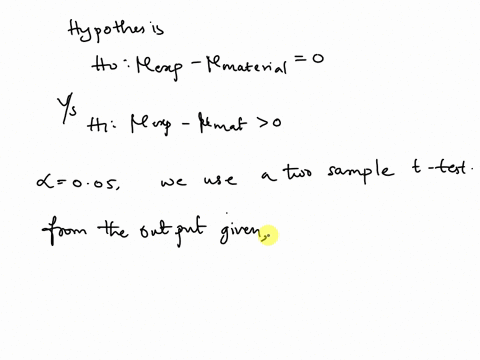 Hypothesis
H0: μexp - μmaterial = 0
V/s
H1: μexp - μmat > 0
α = 0.05, we use a two sample t-test.
from the output given,